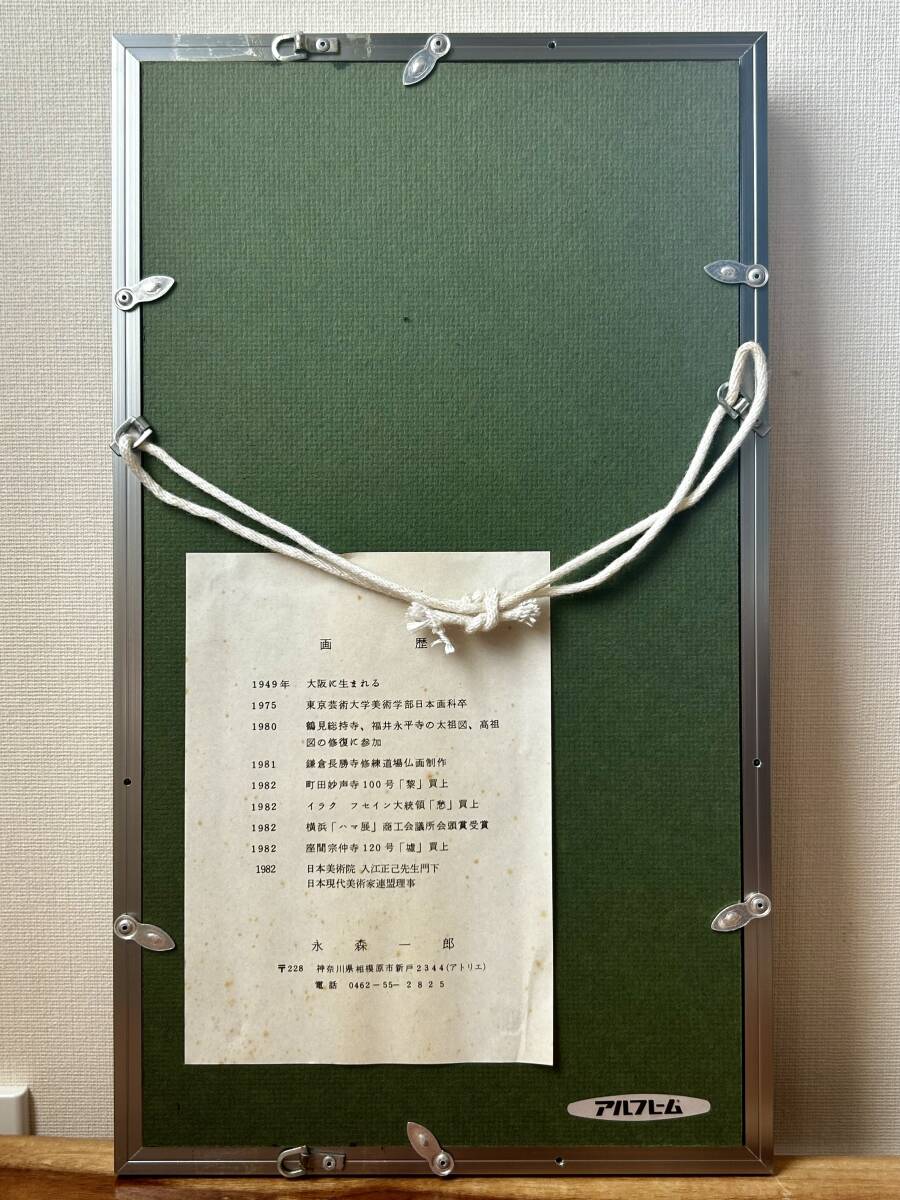 画 歴
1949年 大阪に生まれる
1975 東京芸術大学美術学部日本画科卒
1980 鶴見総持寺、福井永平寺の太祖図、高祖
図の修復に参加
1981 鎌倉長勝寺修練道場仏画制作
1982 町田妙声寺100号「黎」買上
1982 イラク フセイン大統領「愁」買上
1982 横浜「ハマ展」商工会議所会頭賞受賞
1982 座間宗仲寺120号「墟」買上
1982 日本美術院 入江正己先生門下
日本現代美術家連盟理事
永森一郎
〒228 神奈川県相模原市新戸2344(アトリエ)
電話 0462-55-2825
アルフレーム